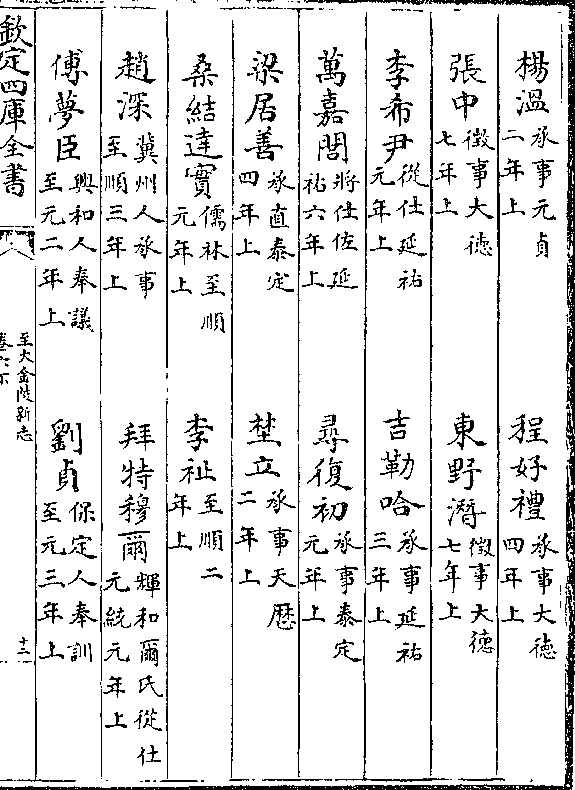 楊溫承事元貞二年上 程好禮承事大德四年上
張中徵事大德七年上 東野潛徵事大德七年上
李希尹從仕延祐元年上 吉勒哈承事延祐三年上
萬嘉閭將仕佐延祐六年上 尋復初承事泰定元年上
梁居善承直泰定四年上 埜立承事天歴二年上
桑結達實儒林至順元年上 李祉至順二年上
趙深冀州人承事至順三年上 拜特穆爾輝和爾氏從仕元統元年上
傅夢臣興和人奉議至元二年上 劉貞保定人奉訓至元三年上
欽定四庫全書
至大金陵新志
十二